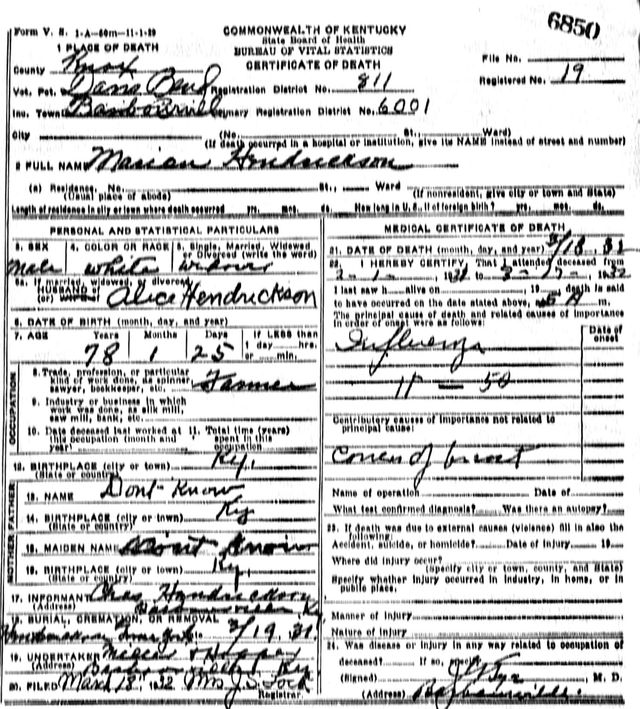 6850
Form V. S. 1-A-50m-11-1-29
COMMONWEALTH OF KENTUCKY
State Board of Health
BUREAU OF VITAL STATISTICS
CERTIFICATE OF DEATH
1 PLACE OF DEATH
County Knox
File No.
Registered No. 19
Vot. Pct. Bend Registration District No. 811
Inc. Town Primary Registration District No. 6001
City (No. St., Ward)
(If death occurred in a hospital or institution, give its NAME instead of street and number)
2 FULL NAME Marion Hendrickson
(a) Residence. No. St., Ward
(Usual place of abode) (If nonresident, give city or town and State)
Length of residence in city or town where death occurred yrs. mos. ds. How long in U. S., if of foreign birth? yrs. mos. ds.
PERSONAL AND STATISTICAL PARTICULARS
3. SEX 4. COLOR OR RACE 5. Single, Married, Widowed or Divorced (write the word)
Male white
5a. If married, widowed, or divorced
HUSBAND of
(or) WIFE of Alice Hendrickson
6. DATE OF BIRTH (month, day, and year)
7. AGE Years Months Days If LESS than 1 day hrs. or min.
78 1 25
8. Trade, profession, or particular kind of work done, as spinner, sawyer, bookkeeper, etc. Farmer
9. Industry or business in which work was done, as silk mill, saw mill, bank, etc.
10. Date deceased last worked at this occupation (month and year)
11. Total time (years) spent in this occupation
OCCUPATION
12. BIRTHPLACE (city or town) Ky.
(State or country)
FATHER
13. NAME Dont Know
14. BIRTHPLACE (city or town) Ky
(State or country)
MOTHER
15. MAIDEN NAME Dont Know
16. BIRTHPLACE (city or town) Ky.
(State or country)
17. INFORMANT Chas Hendrickson
(Address) Ky
18. BURIAL, CREMATION, OR REMOVAL
3/19 31
19. UNDERTAKER
(Address) Ky
20. FILED 18, 1932 Mrs J. S.
Registrar.
MEDICAL CERTIFICATE OF DEATH
21. DATE OF DEATH (month, day, and year) 3/18
22. I HEREBY CERTIFY, That I attended deceased from
I last saw h alive on , 19 death is said
to have occurred on the date stated above, m.
The principal cause of death and related causes of importance in order of onset were as follows:
Date of onset
Influenza
11 — 50
Contributory causes of importance not related to principal cause:
Name of operation Date of
What test confirmed diagnosis? Was there an autopsy?
23. If death was due to external causes (violence) fill in also the following:
Accident, suicide, or homicide? Date of injury 19
Where did injury occur?
(Specify city or town, county, and State)
Specify whether injury occurred in industry, in home, or in public place.
Manner of injury
Nature of injury
24. Was disease or injury in any way related to occupation of deceased? If so,
(Signed) , M. D.
(Address) Barbourville.